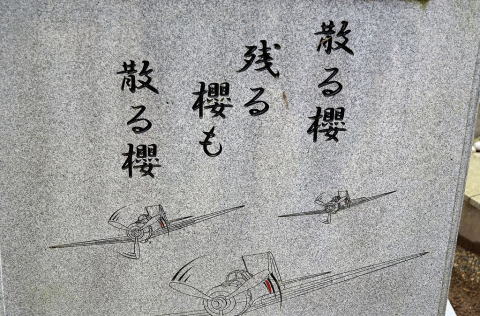 散る櫻
残る
櫻も
散る櫻